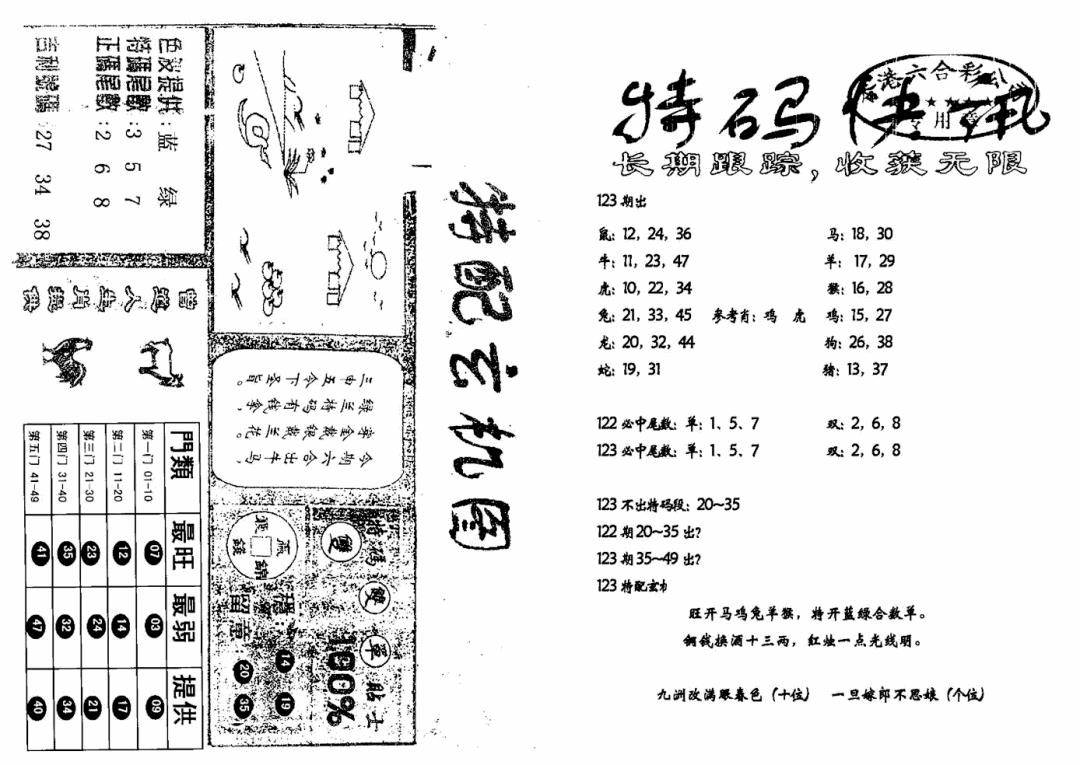 特码快讯
香港六合彩公司
★★★★★
专用章
长期跟踪，收获无限
123期出
鼠：12，24，36 马：18，30
牛：11，23，47 羊：17，29
虎：10，22，34 猴：16，28
兔：21，33，45 参考肖：鸡 虎 鸡：15，27
龙：20，32，44 狗：26，38
蛇：19，31 猪：13，37
122必中尾数：单：1、5、7 双：2，6，8
123必中尾数：单：1、5、7 双：2，6，8
123不出特码段：20～35
122期20～35出？
123期35～49出？
123特配玄
旺开马鸡兔羊猴，特开蓝绿合数单。
铜钱换酒十三两，红烛一点光线明。
九洲改满眼春色（十位） 一旦嫁郎不思娘（个位）
特配玄机图
色波提供：蓝 绿
特碼尾數：3 5 7
正碼尾數：2 6 8
吉利號碼：27 34 38
曾道人生肖
今期六合出牛马，
穿金戴银数兰花。
绿兰特码有钱拿，
三由五令下圣旨。
門類 最旺 最弱 提供
第一门 01-10 07 03 09
第二门 11-20 12 14 17
第三门 21-30 23 24 21
第四门 31-40 35 32 34
第五门 41-49 41 47 40
特碼 雙 雙 單 貼士
100%
赢錢
留意
14 19
20 35